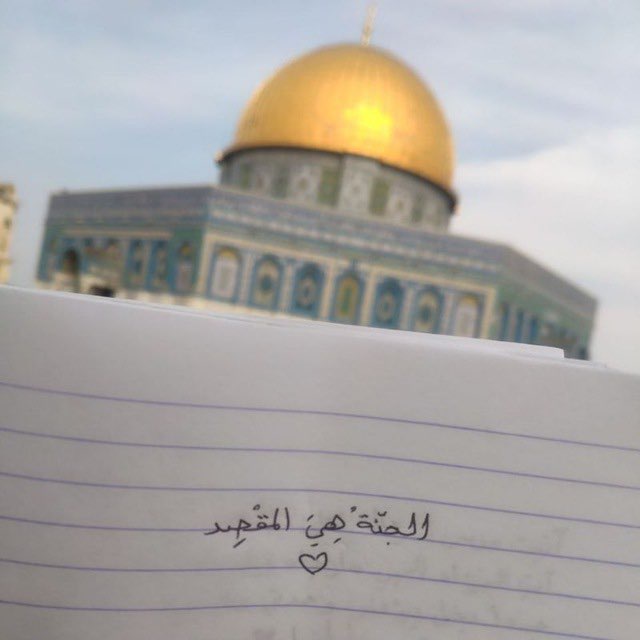 الجنّةُ هِيَ المقْصِد